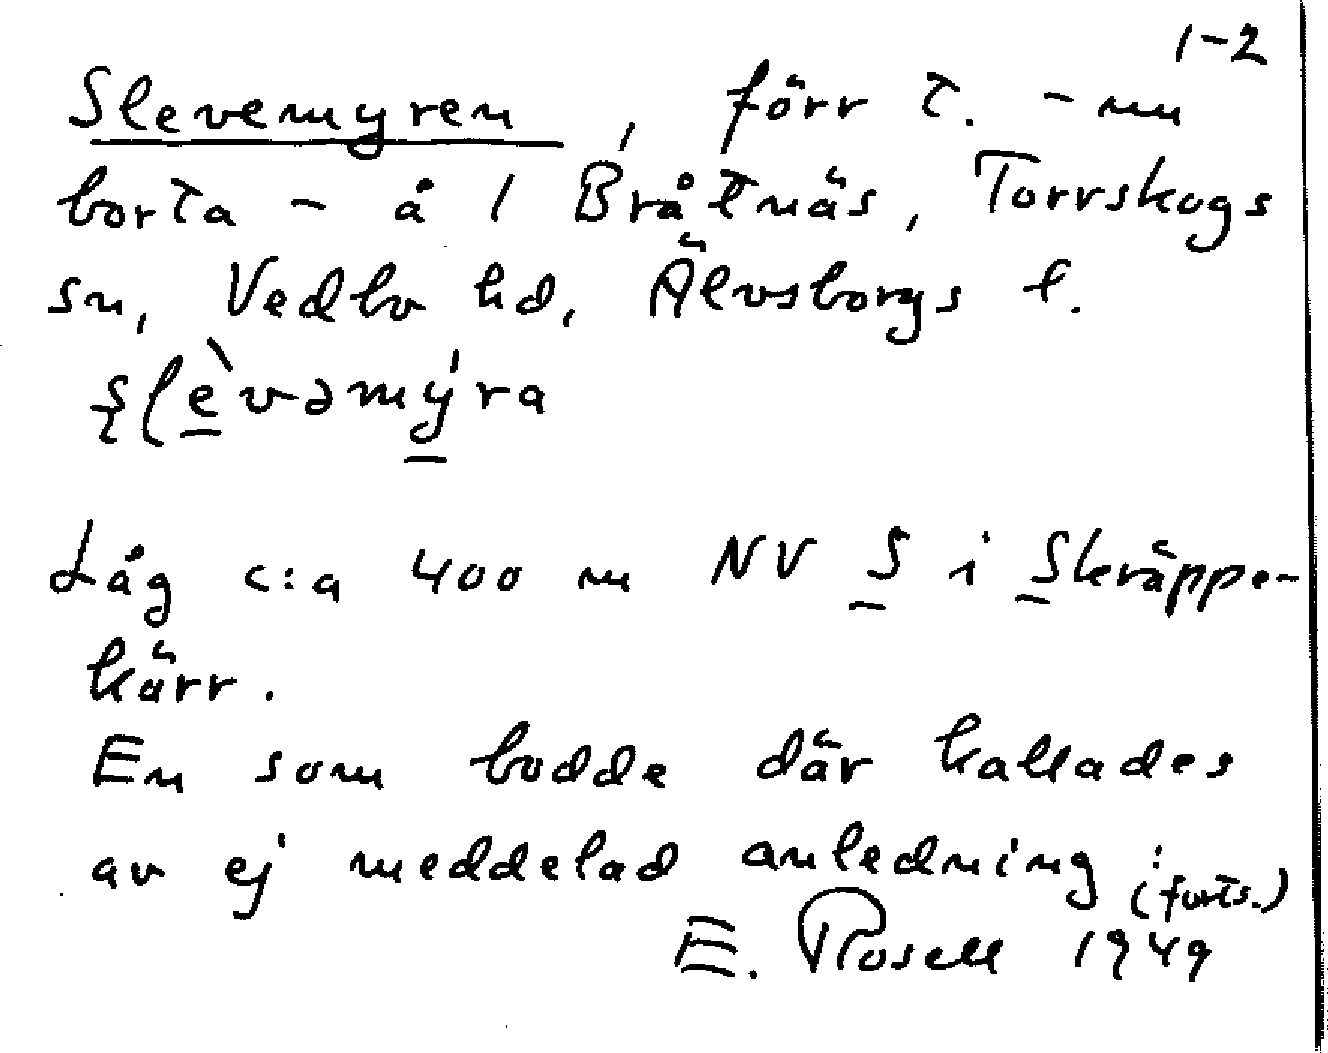 1-2
Slevemyren, förr t. - nu
borta - å 1 Bråtnäs, Torrskogs
sn, Vedbo hd, Älvsborgs l.
ʂlèvəmýra
Låg c:a 400 m NV S i Skräppe-
kärr.
En som bodde där kallades
av ej meddelad anledning: (forts.)
E. Rosell 1949